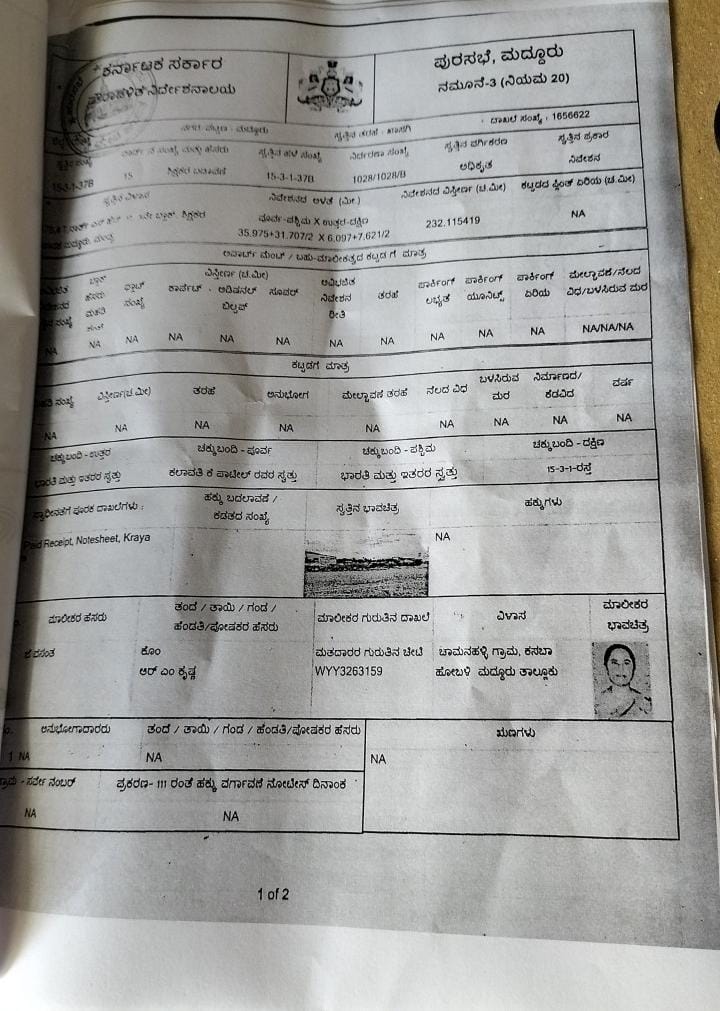 ಕರ್ನಾಟಕ ಸರ್ಕಾರ
ಪೌರಾಡಳಿತ ನಿರ್ದೇಶನಾಲಯ
ಪುರಸಭೆ, ಮದ್ದೂರು
ನಮೂನೆ-3 (ನಿಯಮ 20)
ದಾಖಲೆ ಸಂಖ್ಯೆ : 1656622
ನಗರ/ಪಟ್ಟಣ : ಮದ್ದೂರು ಸ್ವತ್ತಿನ ತರಹೆ : ಖಾಸಗಿ
ಸ್ವತ್ತಿನ ಸಂಖ್ಯೆ ವಾರ್ಡ್ ನ ಸಂಖ್ಯೆ ಮತ್ತು ಹೆಸರು ಸ್ವತ್ತಿನ ಹಳೆ ಸಂಖ್ಯೆ ನಿರ್ಧರಣಾ ಸಂಖ್ಯೆ ಸ್ವತ್ತಿನ ವರ್ಗಿಕರಣ ಸ್ವತ್ತಿನ ಪ್ರಕಾರ
15-3-1-37B 15 ಶಿಕ್ಷಕರ ಬಡಾವಣೆ 15-3-1-37B 1028/1028/B ಅಧಿಕೃತ ನಿವೇಶನ
ಸ್ವತ್ತಿನ ವಿಳಾಸ ನಿವೇಶನದ ಅಳತೆ (ಮೀ.) ನಿವೇಶನದ ವಿಸ್ತೀರ್ಣ (ಚ.ಮೀ) ಕಟ್ಟಡದ ಪ್ಲಿಂತ್ ಏರಿಯ (ಚ.ಮೀ)
ಪೂರ್ವ-ಪಶ್ಚಿಮ X ಉತ್ತರ-ದಕ್ಷಿಣ
35.975+31.707/2 X 6.097+7.621/2 232.115419 NA
ಅಪಾರ್ಟ್ ಮೆಂಟ್ / ಬಹು-ಮಾಲೀಕತ್ವದ ಕಟ್ಟಡ ಗೆ ಮಾತ್ರ
ಬ್ಲಾಕ್ ಹೆಸರು ಫ್ಲಾಟ್ ಸಂಖ್ಯೆ ವಿಸ್ತೀರ್ಣ (ಚ.ಮೀ) ಕಾರ್ಪೆಟ್ ಅಡಿಷನಲ್ ಬಿಲ್ಟಪ್ ಸೂಪರ್ ಅವಿಭಜಿತ ನಿವೇಶನ ರೀತಿ ತರಹೆ ಪಾರ್ಕಿಂಗ್ ಲಭ್ಯತೆ ಪಾರ್ಕಿಂಗ್ ಯೂನಿಟ್ಸ್ ಪಾರ್ಕಿಂಗ್ ಏರಿಯ ಮೇಲ್ಛಾವಣೆ/ನೆಲದ ವಿಧ/ಬಳಸಿರುವ ಮರ
NA NA NA NA NA NA NA NA NA NA NA NA/NA/NA
ಕಟ್ಟಡಗೆ ಮಾತ್ರ
ಸಂಖ್ಯೆ ವಿಸ್ತೀರ್ಣ(ಚ.ಮೀ) ತರಹೆ ಅನುಭೋಗ ಮೇಲ್ಛಾವಣೆ ತರಹೆ ನೆಲದ ವಿಧ ಬಳಸಿರುವ ಮರ ನಿರ್ಮಾಣದ/ಕೆಡವಿದ ವರ್ಷ
NA NA NA NA NA NA NA NA NA
ಚಕ್ಕುಬಂದಿ-ಉತ್ತರ ಚಕ್ಕುಬಂದಿ - ಪೂರ್ವ ಚಕ್ಕುಬಂದಿ -ಪಶ್ಚಿಮ ಚಕ್ಕುಬಂದಿ - ದಕ್ಷಿಣ
ಭಾರತಿ ಮತ್ತು ಇತರರ ಸ್ವತ್ತು ಕಲಾವತಿ ಕೆ ಪಾಟೀಲ್ ರವರ ಸ್ವತ್ತು ಭಾರತಿ ಮತ್ತು ಇತರರ ಸ್ವತ್ತು 15-3-1-ರಸ್ತೆ
ಸ್ವಾಧೀನತೆಗೆ ಪೂರಕ ದಾಖಲೆಗಳು : ಹಕ್ಕು ಬದಲಾವಣೆ / ಕಡತದ ಸಂಖ್ಯೆ ಸ್ವತ್ತಿನ ಭಾವಚಿತ್ರ ಹಕ್ಕುಗಳು
Receipt, Notesheet, Kraya NA
ಮಾಲೀಕರ ಹೆಸರು ತಂದೆ / ತಾಯಿ / ಗಂಡ / ಹೆಂಡತಿ/ಪೋಷಕರ ಹೆಸರು ಮಾಲೀಕರ ಗುರುತಿನ ದಾಖಲೆ ವಿಳಾಸ ಮಾಲೀಕರ ಭಾವಚಿತ್ರ
ಕೊಂ ಮತದಾರರ ಗುರುತಿನ ಚೀಟಿ ಚಾಮನಹಳ್ಳಿ ಗ್ರಾಮ, ಕಸಬಾ
ಆರ್ ಎಂ ಕೃಷ್ಣ WYY3263159 ಹೋಬಳಿ ಮದ್ದೂರು ತಾಲ್ಲೂಕು
ಅನುಭೋಗದಾರರು ತಂದೆ / ತಾಯಿ / ಗಂಡ / ಹೆಂಡತಿ/ಪೋಷಕರ ಹೆಸರು ಋಣಗಳು
1 NA NA NA
ಗ್ರಾಮ - ಸರ್ವೆ ನಂಬರ್ ಪ್ರಕರಣ- 111 ರಂತೆ ಹಕ್ಕು ವರ್ಗಾವಣೆ ನೋಟೀಸ್ ದಿನಾಂಕ
NA NA
1 of 2